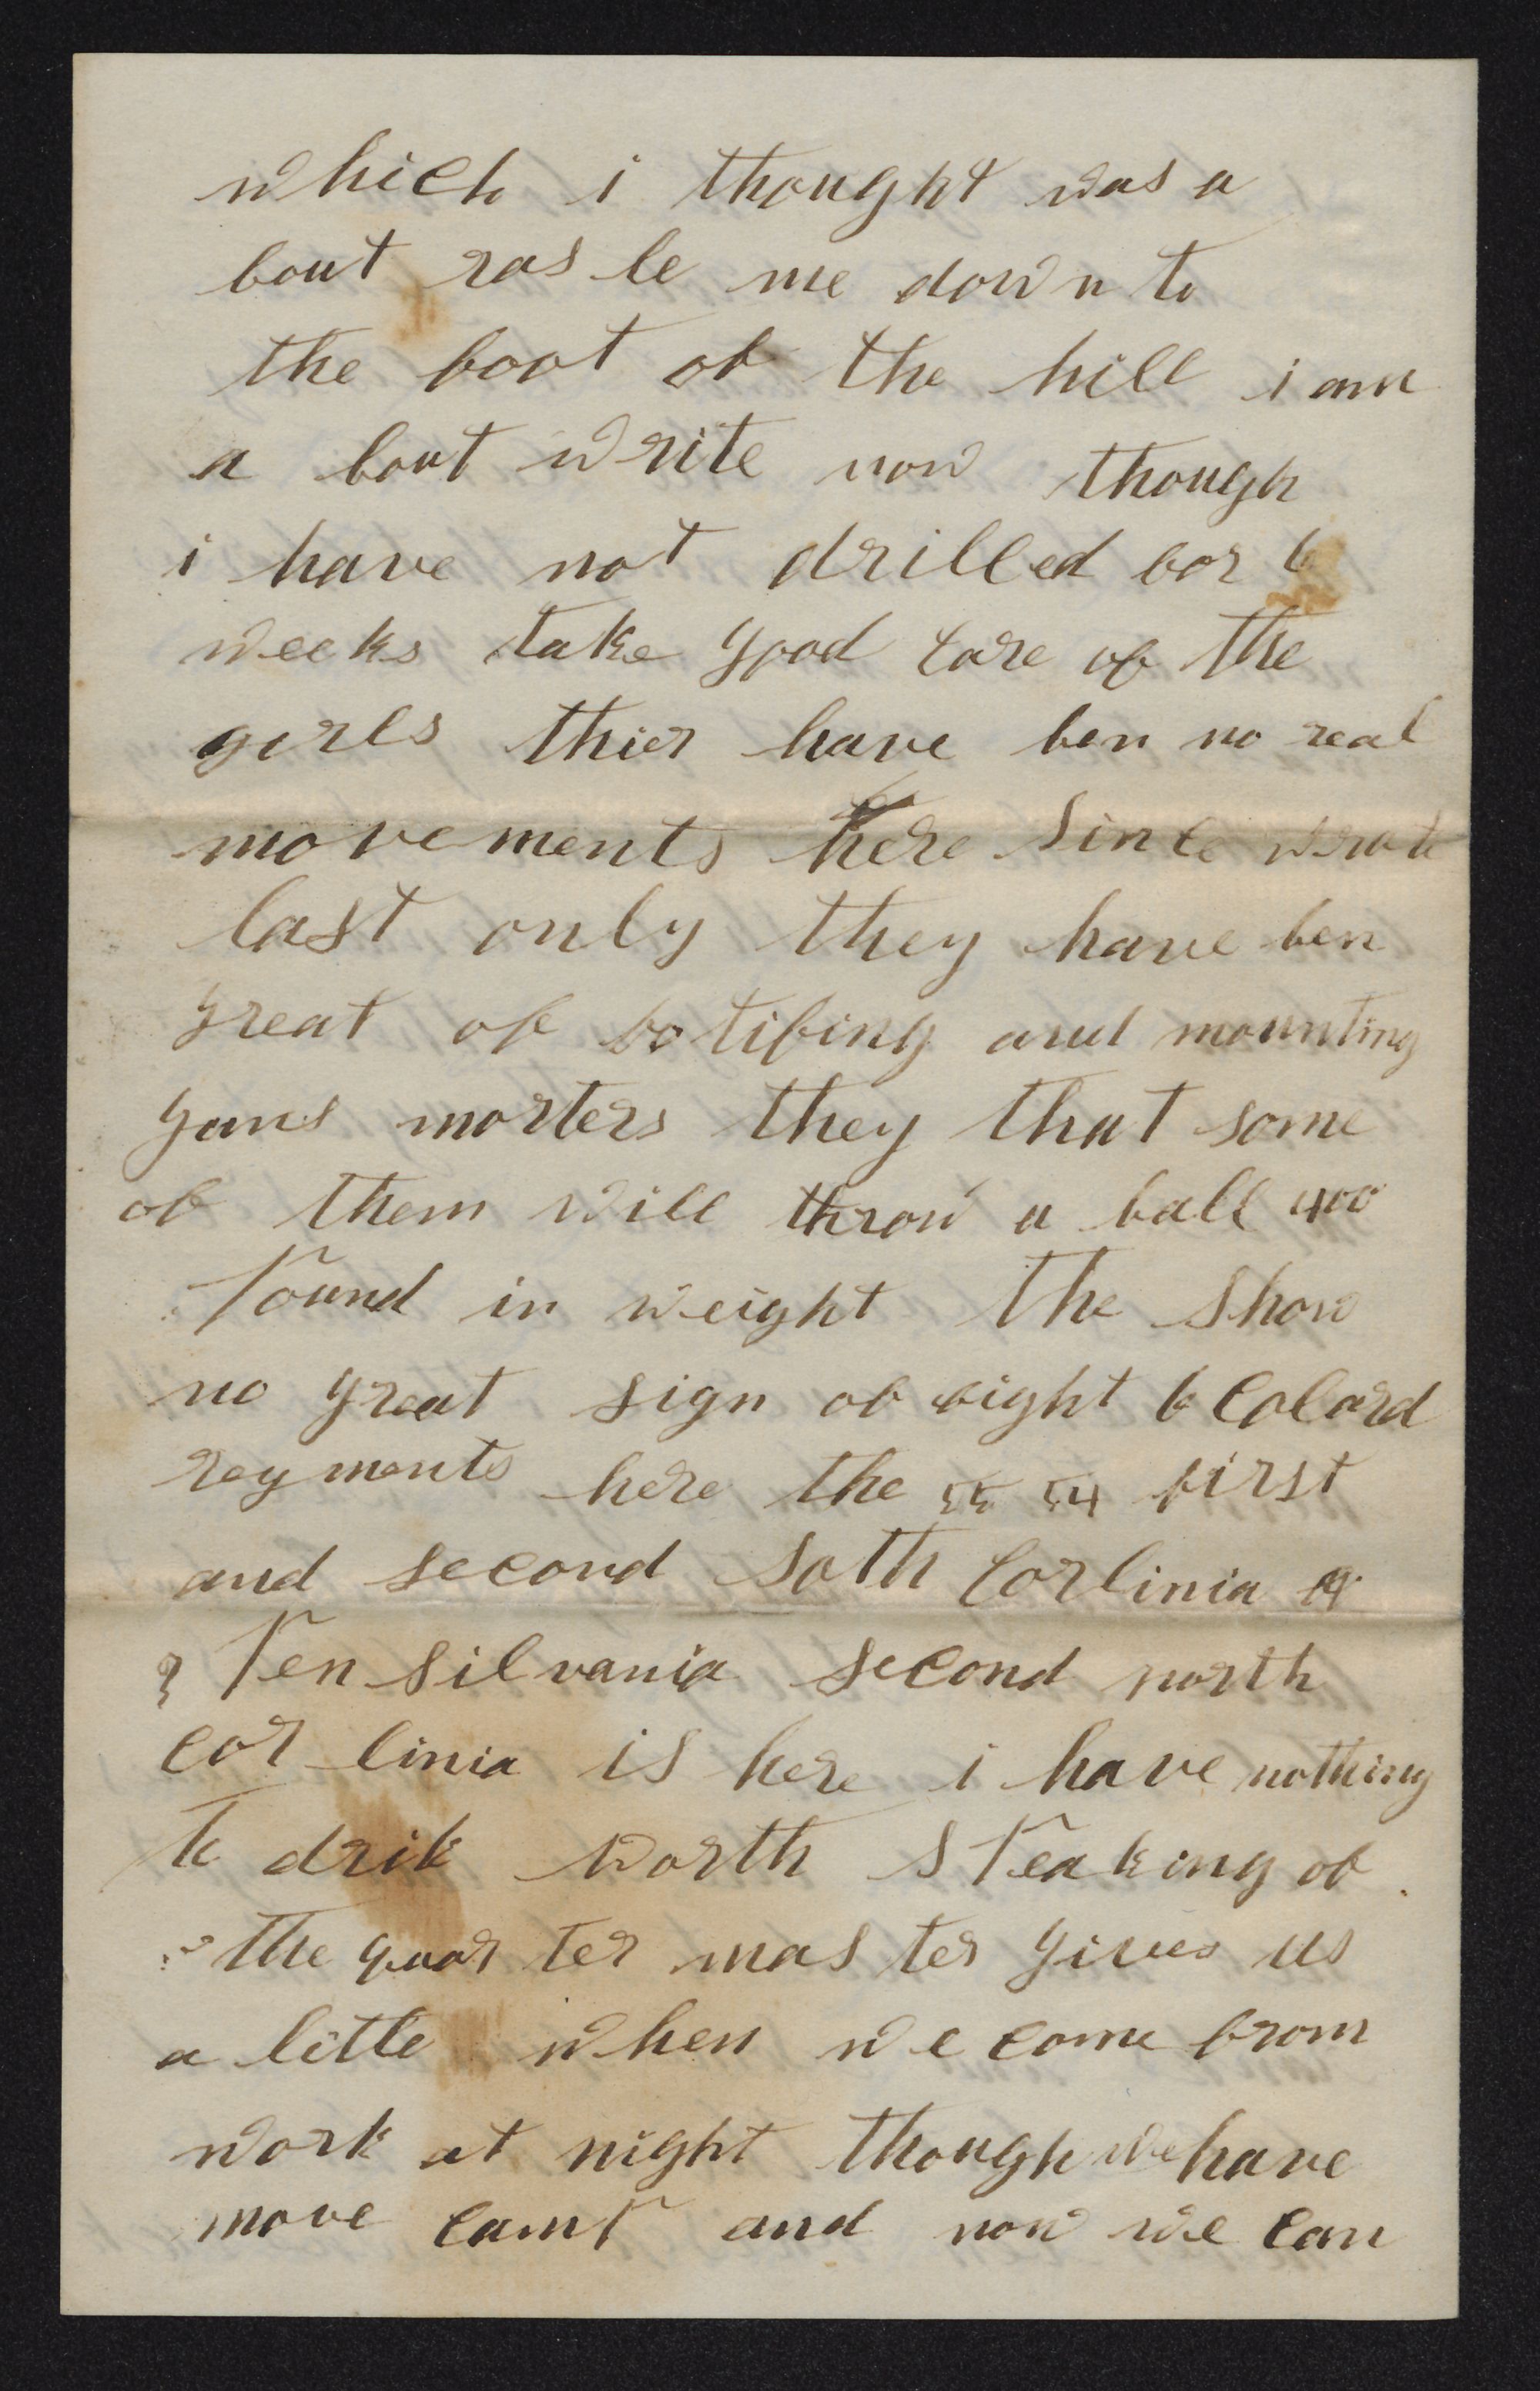 which i thought was a
bout rasle me down to
the foot of the hill i am
a bout write now though
i have not drilled for 6
weeks take good care of the
girls thier have ben no real
movements here since wrote
last only they have ben
great of fotifing and mounting
guns morters they that some
of them will throw a ball 400
pound in weight the show
no great sign of fight 6 Colard
regments here the 55 54 first
and second soth Carlinia
3 Pensilvania second north
Carlinia is here i have nothing
to drik worth speaking of
the quarter master gives us
a little when we come from
work at night though we have
move camp and now we can